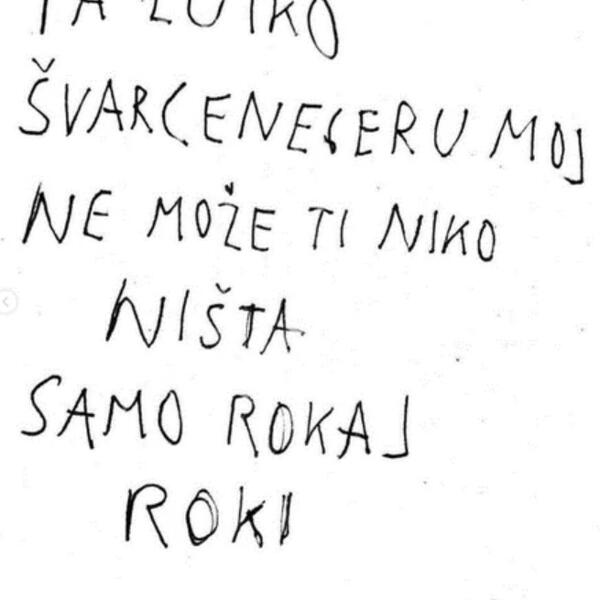 LUTKO
ŠVARCENEGERU MOJ
NE MOŽE TI NIKO
NIŠTA
SAMO ROKAJ
ROKI